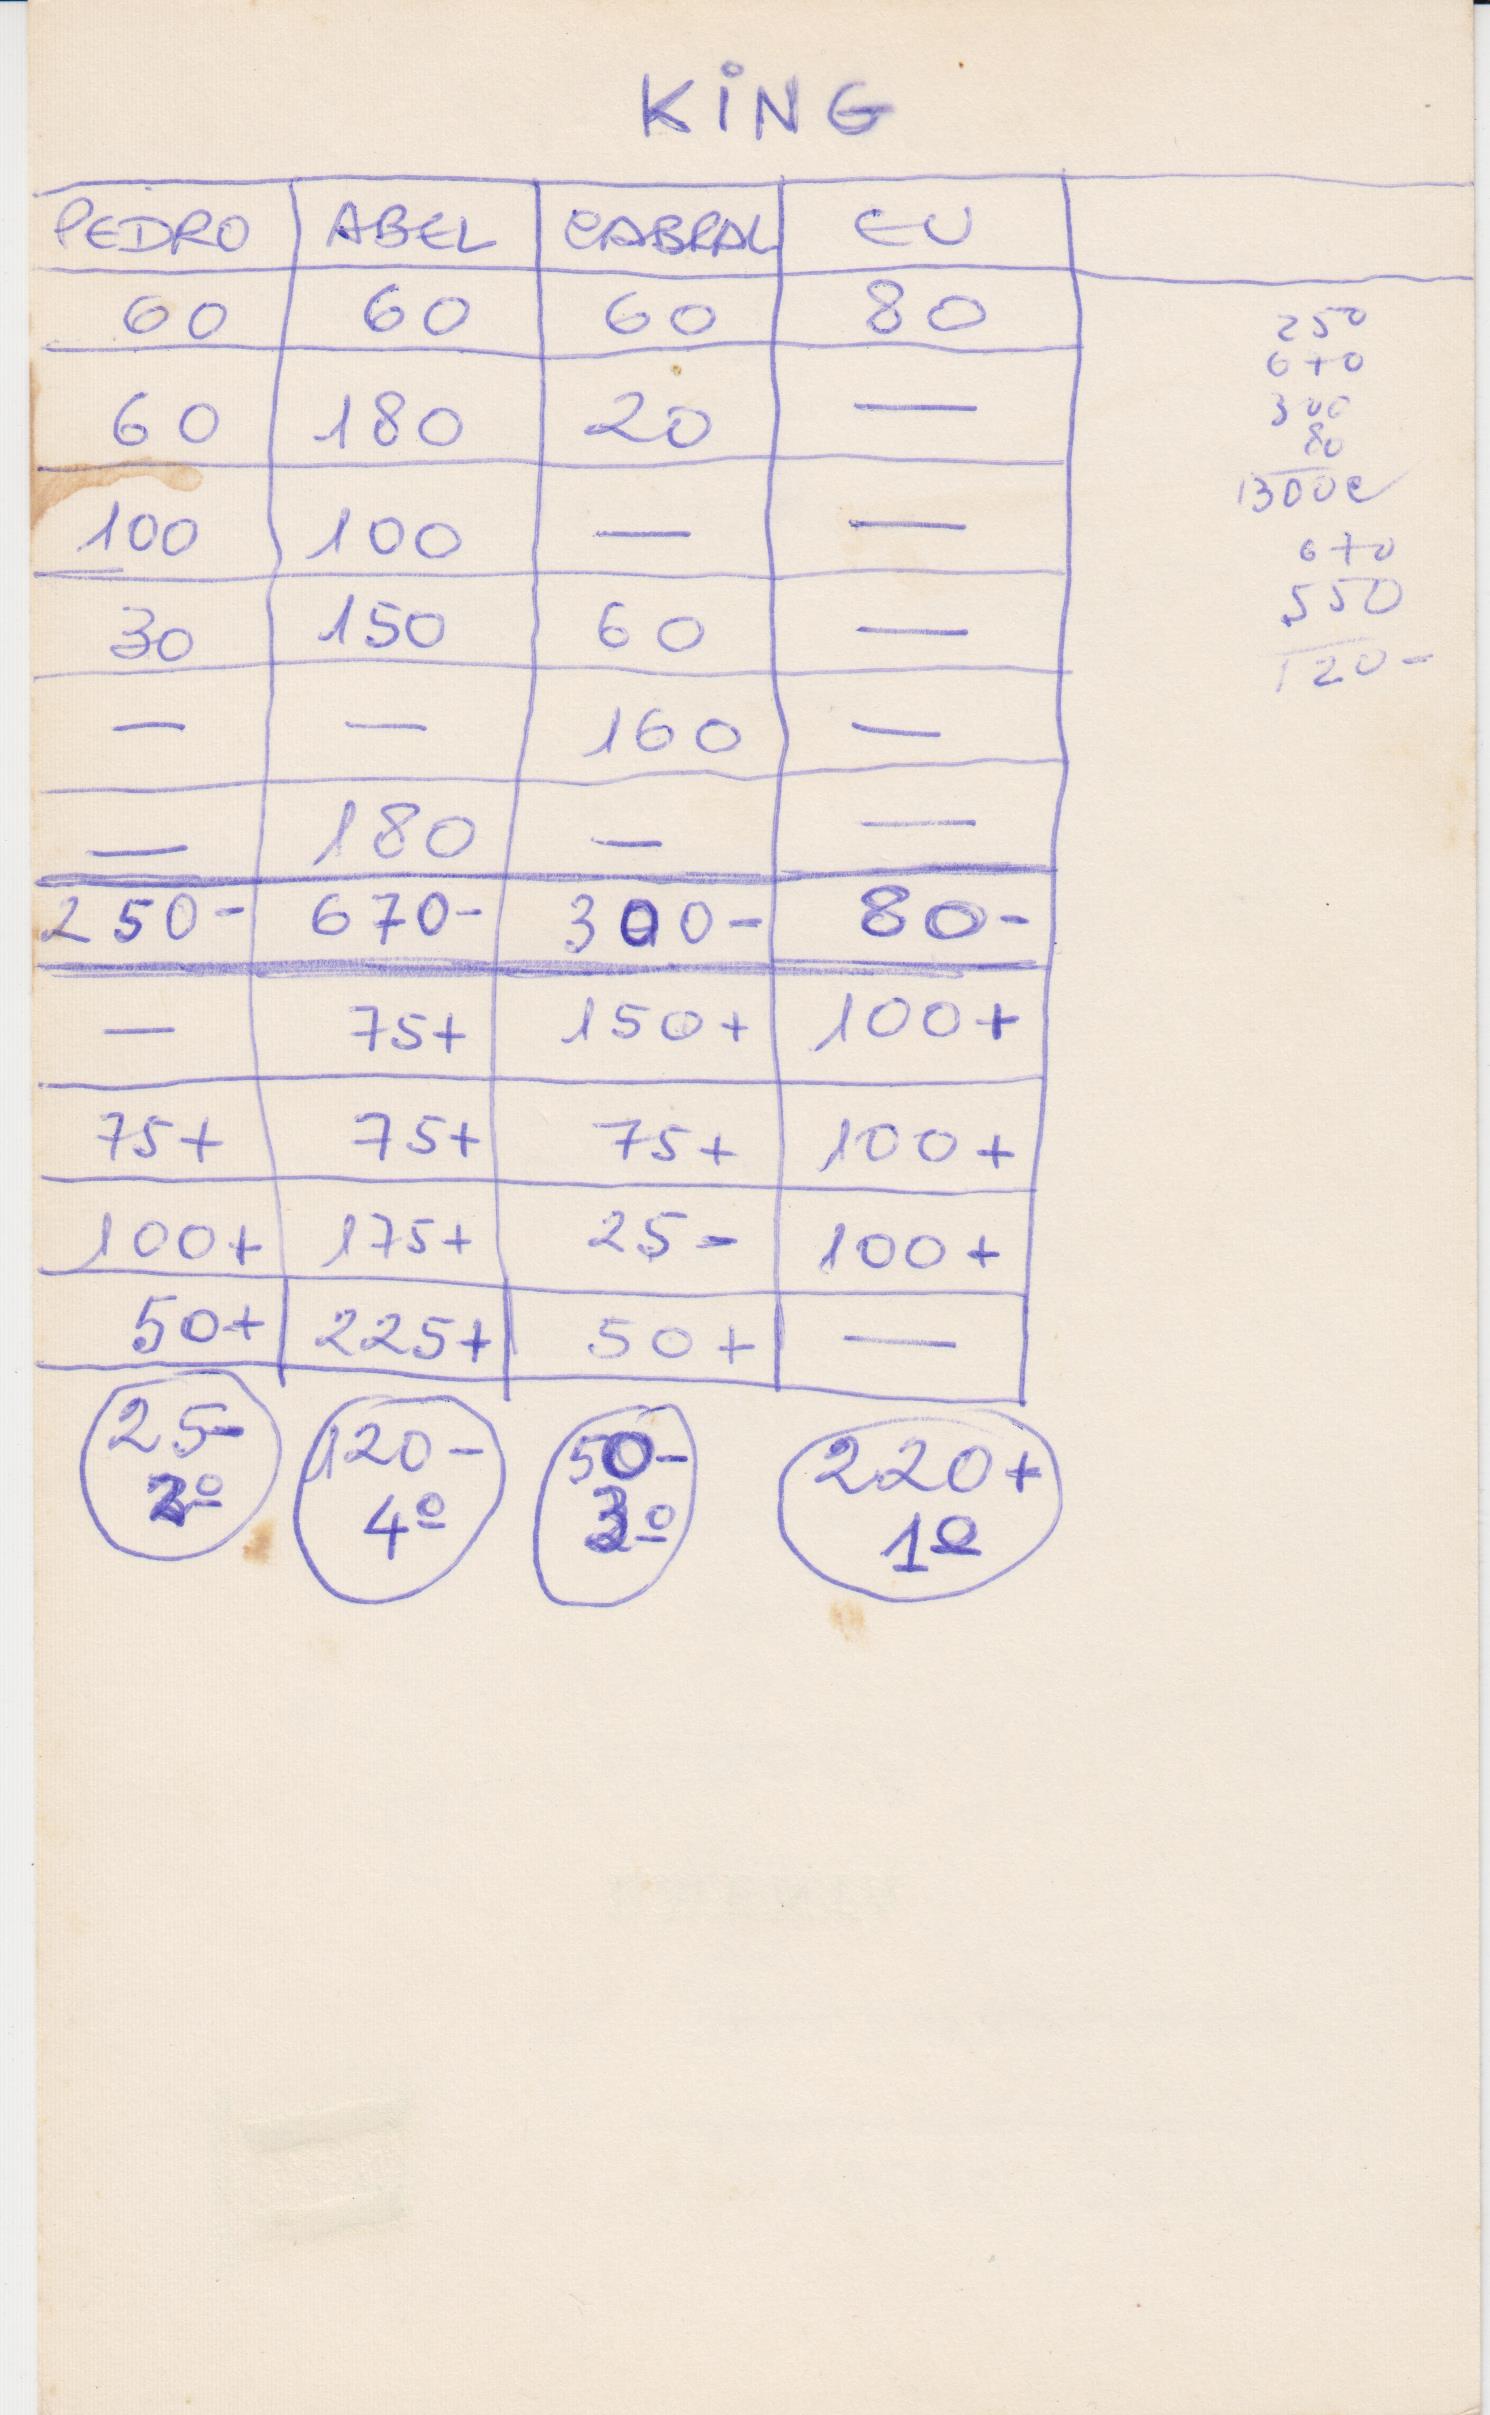 KiNG
PEDRO ABEL CABRAL EU
60 60 60 80
60 180 20 —
100 100 — —
30 150 60 —
— — 160 —
— 180 — —
250- 670- 300- 80-
— 75+ 150+ 100+
75+ 75+ 75+ 100+
100+ 175+ 25- 100+
50+ 225+ 50+ —
25- 120- 50- 220+
2º 4º 3º 1º
250
670
300
80
1300
670
550
120-